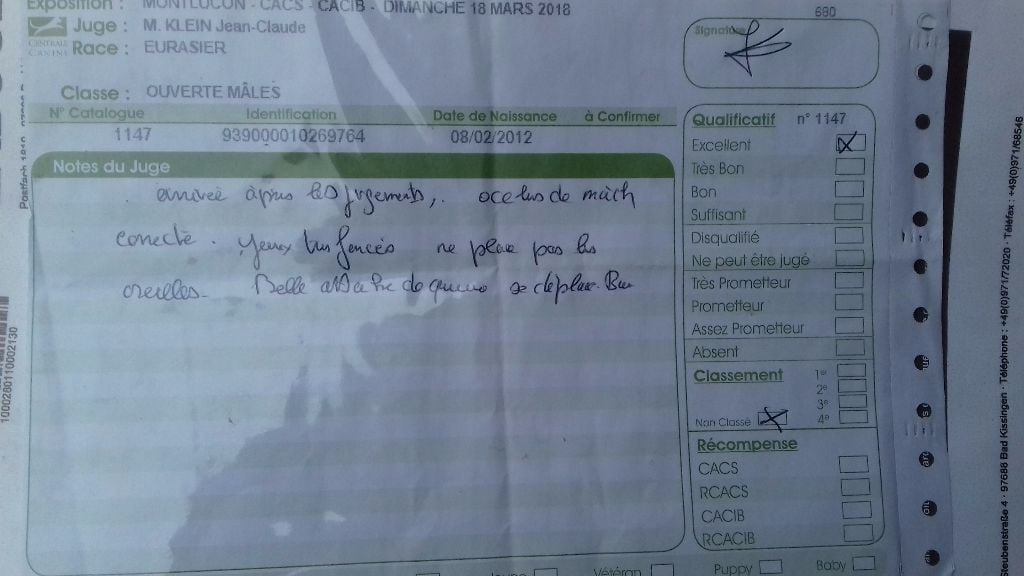 Exposition : MONTLUCON - CACS - CACIB - DIMANCHE 18 MARS 2018
Juge : M. KLEIN Jean-Claude
CENTRALE CANINE
Race : EURASIER
Classe : OUVERTE MÂLES
N° Catalogue Identification Date de Naissance à Confirmer
1147 939000010269764 08/02/2012
Notes du Juge
arrivée après les jugements, de mach
correcte. Yeux très foncés ne place pas les
oreilles. Belle attache de queue se déplace Bien
680
Signature
Qualificatif n° 1147
Excellent
Très Bon
Bon
Suffisant
Disqualifié
Ne peut être jugé
Très Prometteur
Prometteur
Assez Prometteur
Absent
Classement 1er
2e
3e
4e
Non Classé
Récompense
CACS
RCACS
CACIB
RCACIB
Jeune Vétéran Puppy Baby
1000280110002130
Steubenstraße 4 · 97688 Bad Kissingen · Téléphone : +49(0)971/72020 · Téléfax : +49(0)971/68546